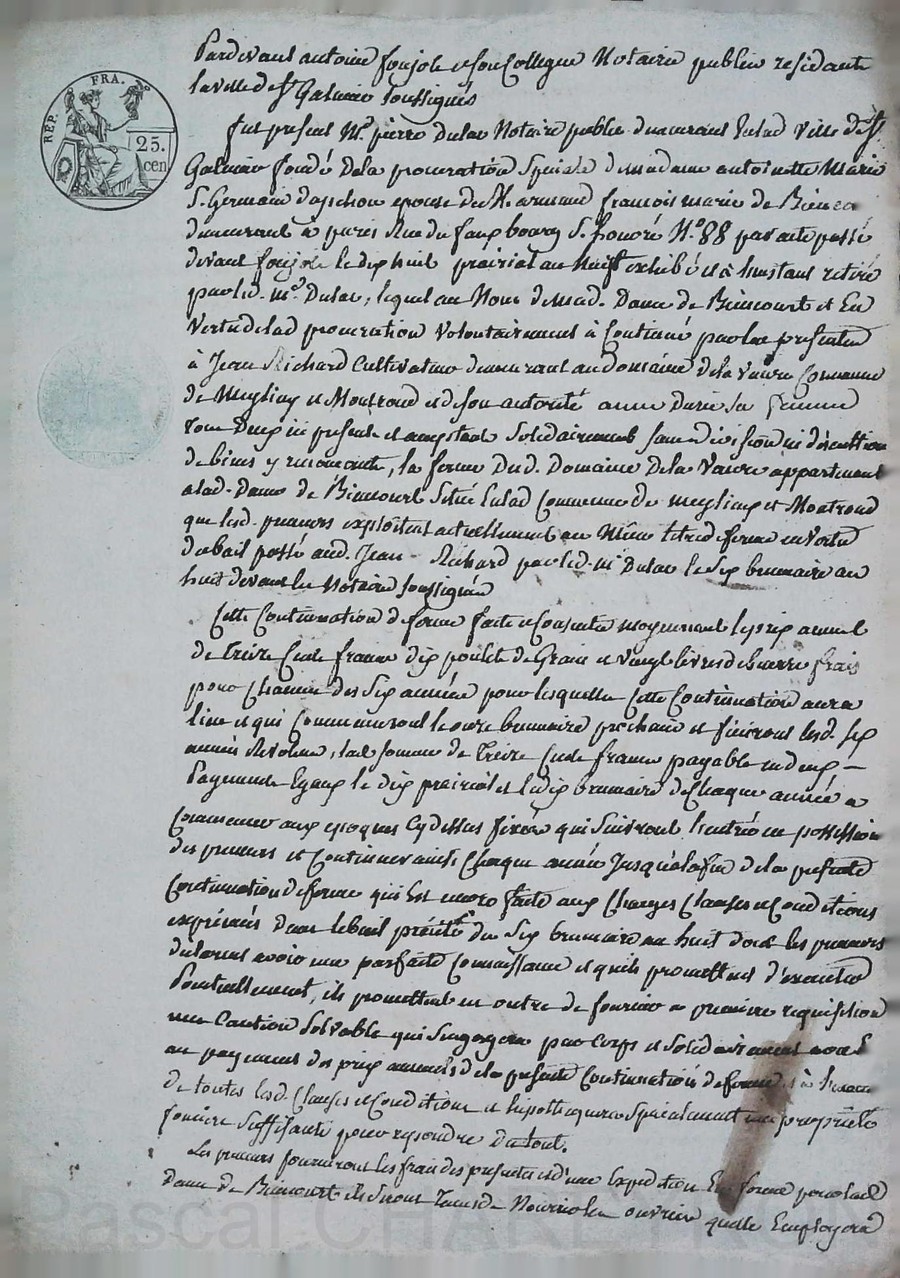 REP. FRA.
25.
cen
Pardevant antoine foujols et son Collegue Notaires publics residants
la ville de St Galmier soussignés
fut present Me. pierre Dulac Notaire public demeurant en lad ville de St.
Galmier fondé de la procuration Speciale de madame antoinette Marie
S. Germain d'apchon epouse du sr. armand françois marie de Bien
demeurant à paris Rue du faux bourg S. honoré N.o 88 par acte passé
devant foujols le dix huit prairial an Neuf exhibé et à l'instant retiré
par led. me. Dulac, lequel au Nom de mad. Dame de Biencourt et En
Vertu de lad procuration Volontairement à Continué par les presentes
à Jean Richard Cultivateur demeurant au domaine de la Vaure Commune
de Meylieu et Montrond et de son autorité anne Durie Sa femme
tous Deux ici presents et acceptants Solidairement sans division ni discution
de biens y renoncants, la ferme Dud. Domaine De la Vaure appartenant
alad. Dame de Biencourt Situé Enlad Commune de meylieux et Montrond
que lesd. preneurs exploitent actuellement au Même titre de ferme en Vertu
du bail passé aud. Jean - Richard par led. me Dulac le Six brumaire an
huit devant les Notaires soussignés
Cette Continuation de ferme faite et Consentie moyennant le prix annuel
de treize Cents francs dix poulets de Grain et vingt livres de beurre frais
pour Chacune des Six années pour lesquelles Cette Continuation aura
lieu et qui Commenceront le onze brumaire prochain et finiront lesd. six
années Revolues, lad somme de treize Cents francs payable en deux -
Payements Egaux le dix prairial et le dix brumaire de Chaque année a
Commencer aux epoques Cydessus fixées qui Suivront l'entrée en possession
des preneurs et Continuer ainsi Chaque année Jusqu'à la fin de la presente
Continuation de ferme qui Est encore faite aux Charges Clauses et Conditions
exprimés dans le bail précité du Six brumaire an huit dont les preneurs
declarent avoir une parfaite Connaissance et qu'ils promettent d'executer
Ponctuellement, ils promettent en outre de fournir a premiere requisition
une Caution Solvable qui S'engagera par Corps et Solidairement avec E
au payement des prix annuels de la presente Continuation de ferme et à
de toutes lesd. Clauses et Conditions et hipothequera Spécialement une proprieté
fonciere Suffisante pour repondre du tout.
Les preneurs fourniront les frais des presentes et d'une Expedition En forme pour lad
dame de Biencourt ils Seront tenus de Nourrir les ouvriers quelle Employera
Pascal CHAREYRON